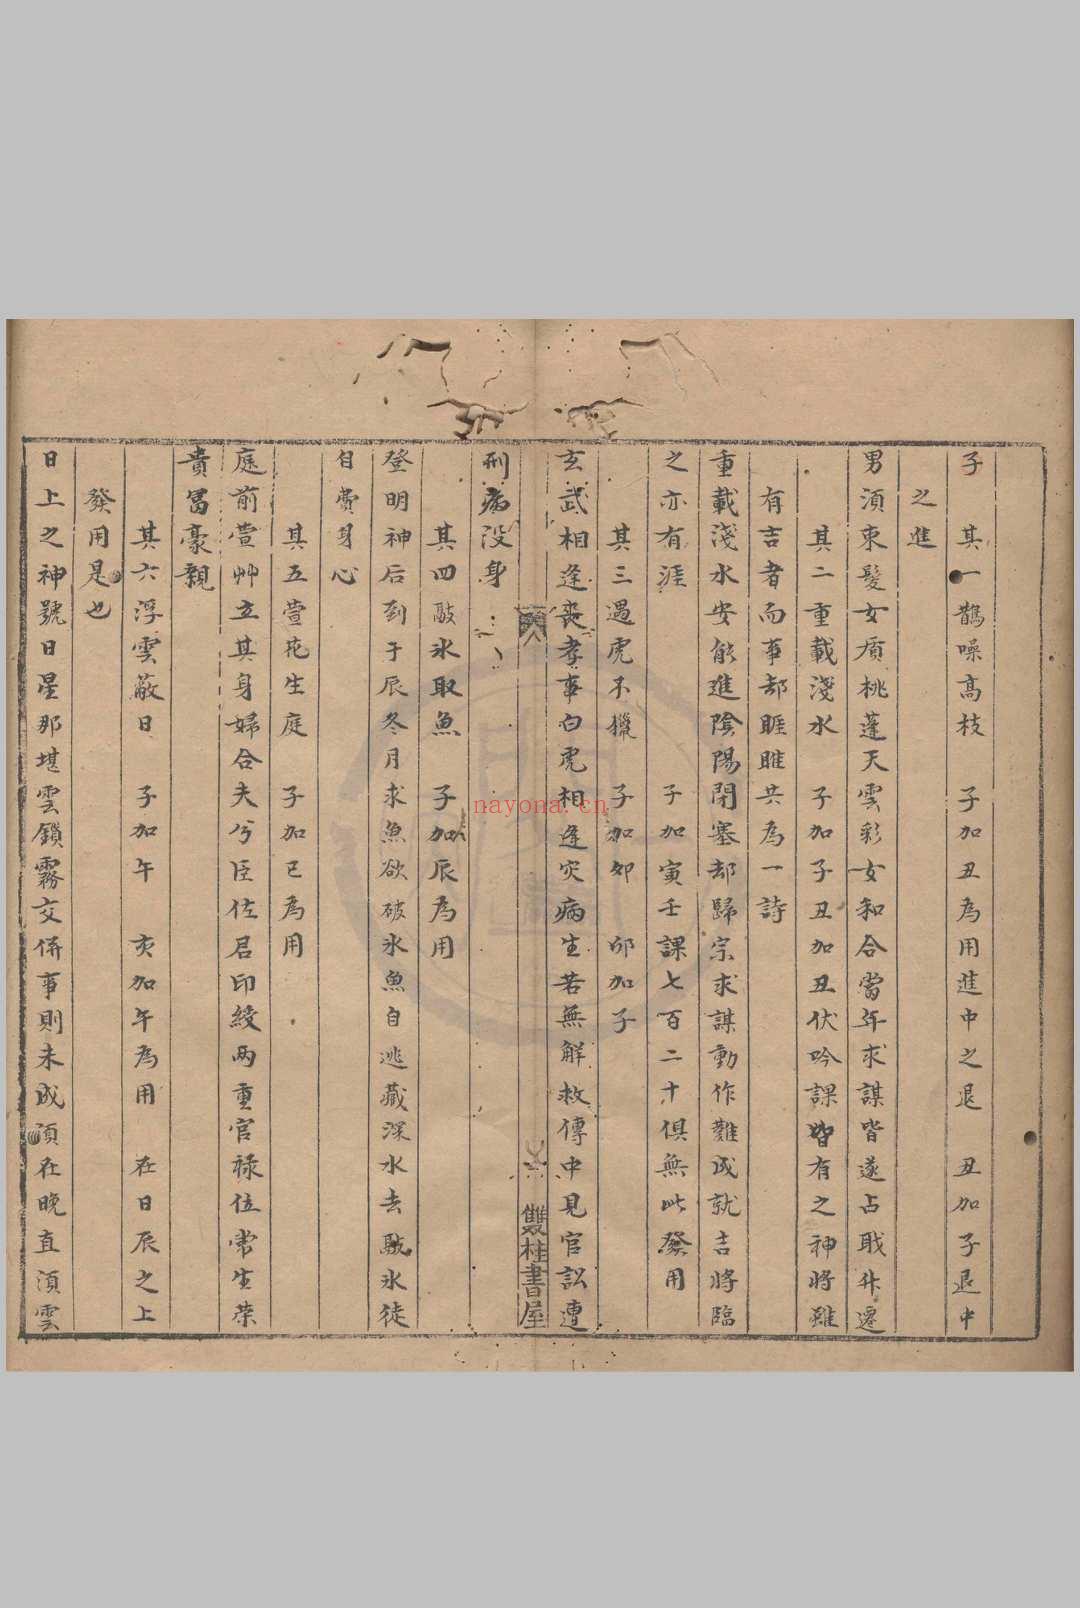 子　其一鵲噪高枝　子加丑為用進中之退　丑加子退中
之進
男湏束髮女質桃蓬天雲彩女和合當年求謀皆遂占戝升遷
其二重載淺水　子加子丑加丑伏吟課皆有之神將雖
有吉者而事却睚睢共為一詩
重載淺水安能進陰陽閉塞却歸宗求謀動作難成就吉將臨
之亦有涯　子加寅壬課七百二十俱無此發用
其三遇虎不獵　子加夘　卯加子
玄武相逢喪孝事白虎相逢灾病生若無解救傳中見官訟遭
刑病没身
其四敲氷取魚　子加辰為用
登明神后到于辰冬月求魚欲破氷魚自逃藏深水去敲氷徒
自費身心
其五萱花生庭　子加巳為用
庭前萱艸立其身婦合夫兮臣佐君印綬两重官禄位常生荣
貴冨豪親
其六浮雲蔽日　子加午　亥加午為用　在日辰之上
發用是也
日上之神號日星那堪雲鎖霧交併事則未成湏在晚直湏雲
雙桂書屋
nayona.cn